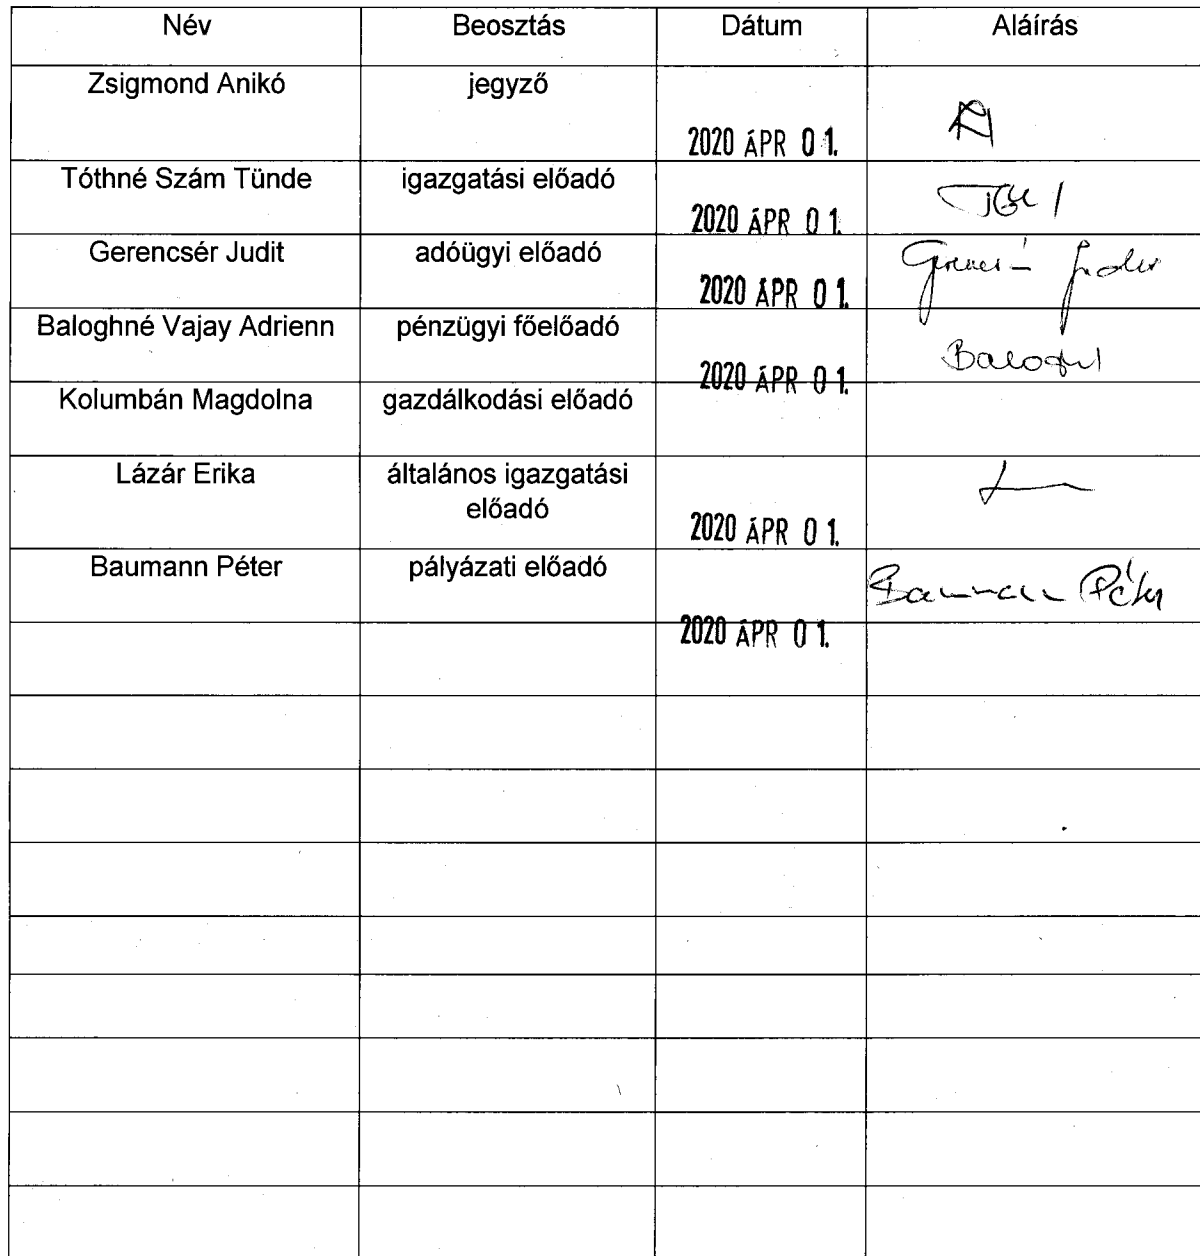 Név Beosztás Dátum Aláírás
Zsigmond Anikó jegyző
2020 ÁPR 01.
Tóthné Szám Tünde igazgatási előadó
2020 ÁPR 01.
Gerencsér Judit adóügyi előadó
2020 ÁPR 01.
Baloghné Vajay Adrienn pénzügyi főelőadó
2020 ÁPR 01.
Kolumbán Magdolna gazdálkodási előadó
Lázár Erika általános igazgatási
előadó
2020 ÁPR 01.
Baumann Péter pályázati előadó
Baumann Péter
2020 ÁPR 01.